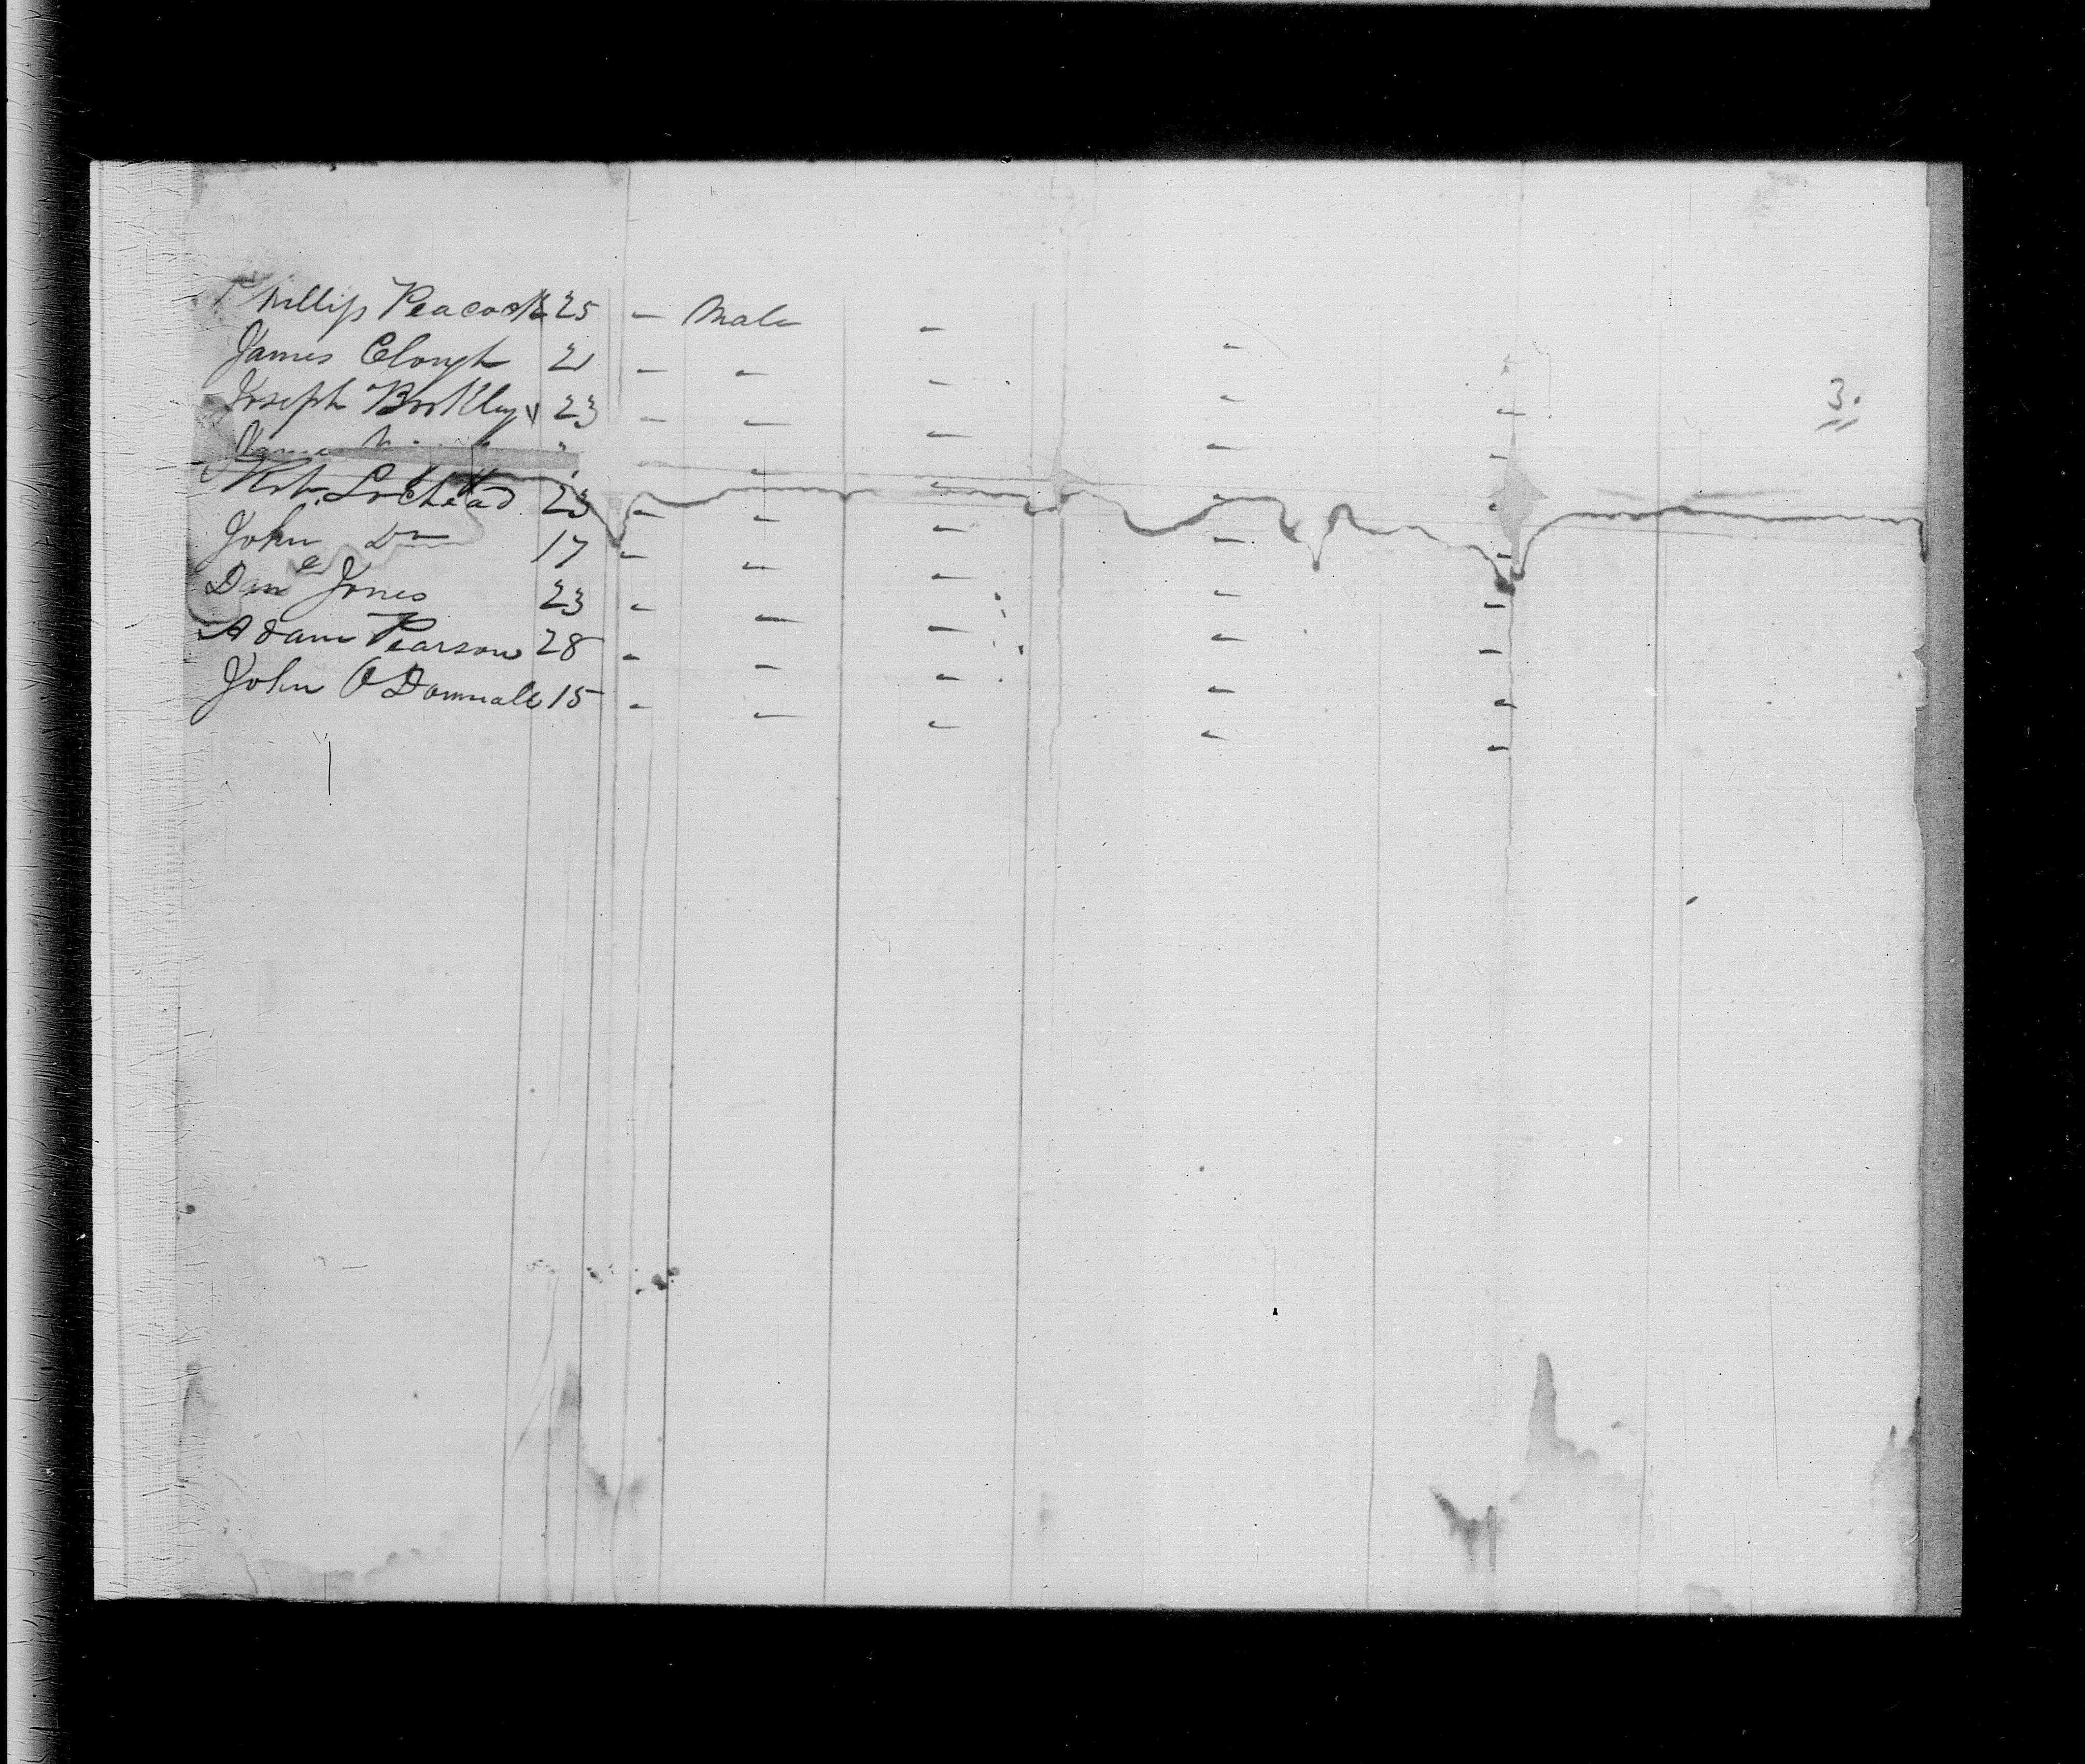 Phillip Peacock 25 - Male - - -
James Clough 21 - - - - -
Joseph 23 - - - - -
James
Robt. Lochead 23 - - - - -
John Do 17 - - - - -
Danl Jones 23 - - - - -
Adam Pearson 28 - - - - -
John O'Donnall 15 - - - - -
3.